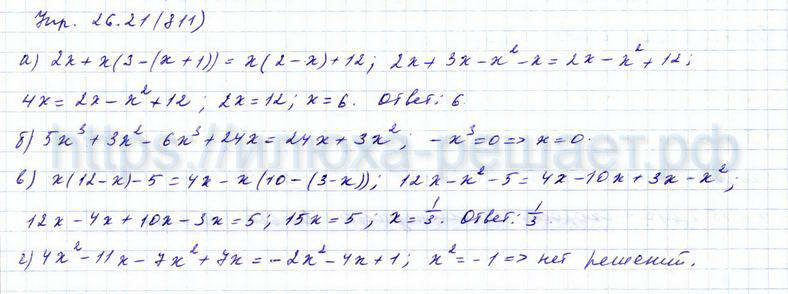 Упр. 26.21(811)
а) 2x + x(3-(x+1)) = x(2-x)+12; 2x+3x-x²-x=2x-x²+12;
4x = 2x-x²+12; 2x=12; x=6. Ответ: 6
б) 5x³+3x²-6x³+24x=24x+3x²; -x³=0=> x=0.
https://илюха-решает.рф
в) x(12-x)-5=4x-x(10-(3-x)); 12x-x²-5=4x-10x+3x-x²;
12x-4x+10x-3x=5; 15x=5; x=1/3. Ответ: 1/3.
г) 4x²-11x-7x²+7x=-2x²-4x+1; x²=-1=> нет решений.